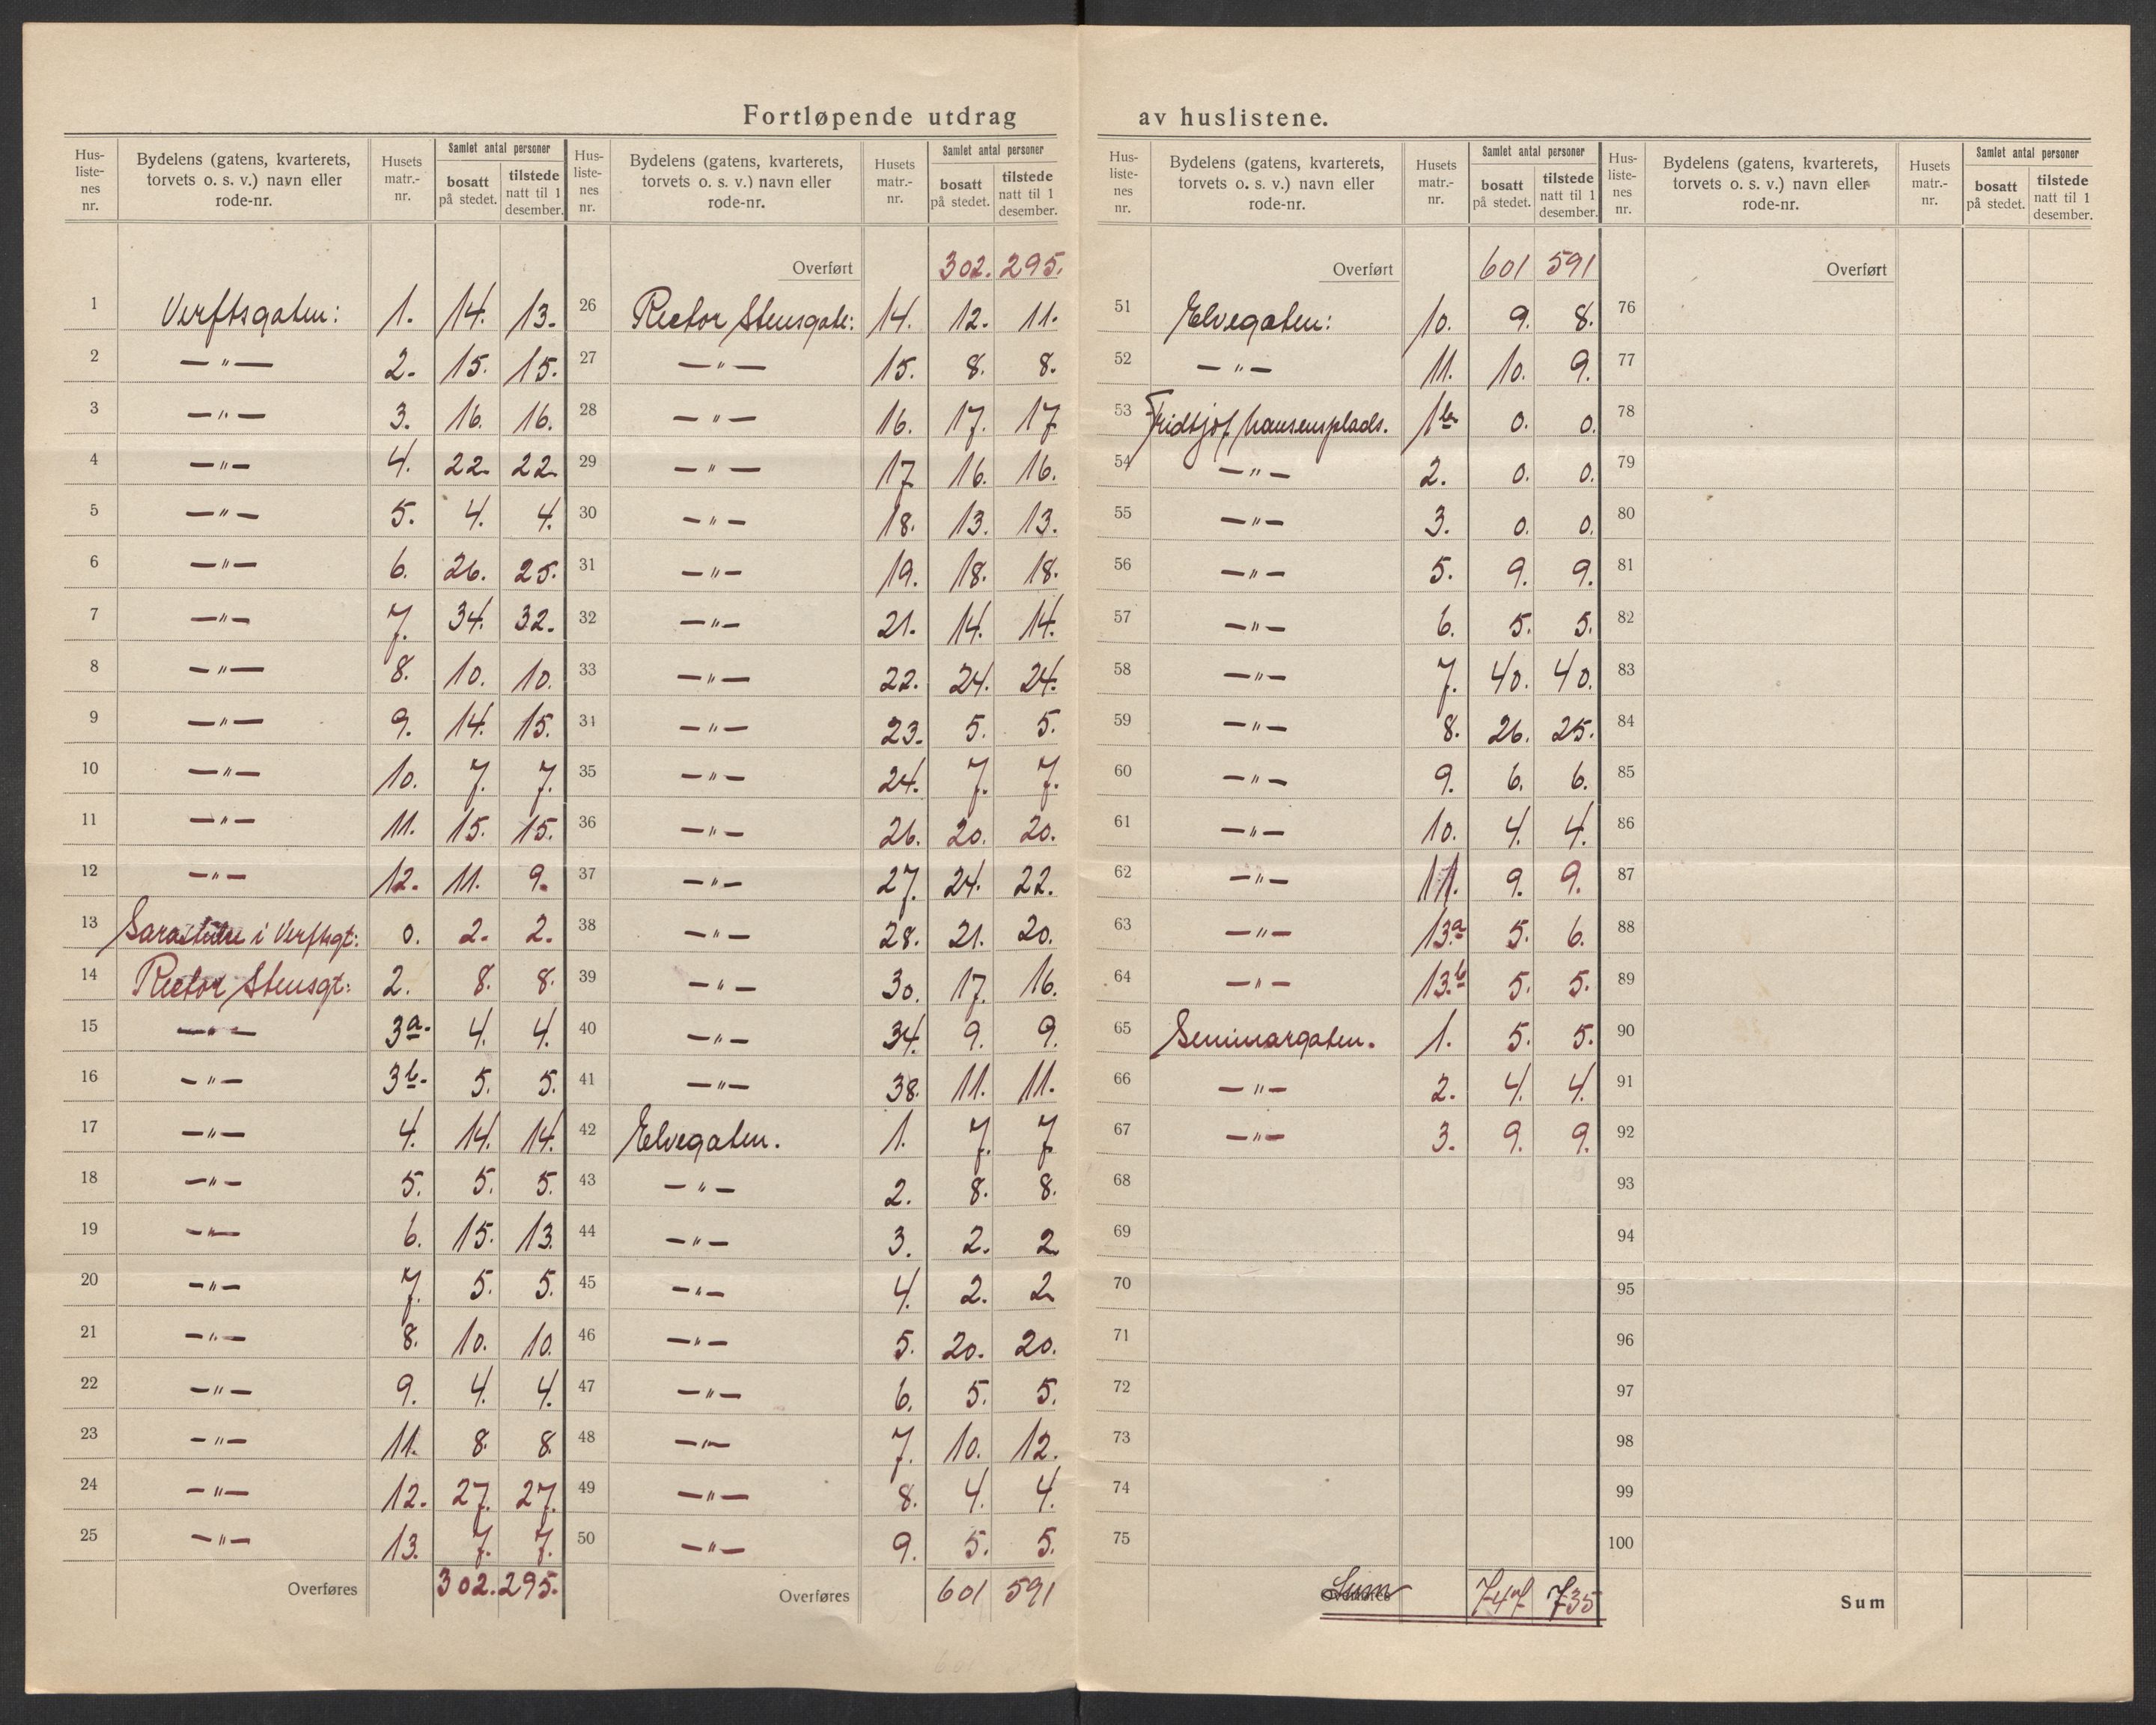 Fortløpende utdrag av huslistene.
Hus-listenes nr. Bydelens (gatens, kvarterets, torvets o. s. v.) navn eller rode-nr. Husets matr.-nr. Samlet antal personer bosatt på stedet. tilstede natt til 1 desember.
1 Verftsgaten: 1. 14. 13.
2 —"— 2. 15. 15.
3 —"— 3. 16. 16.
4 —"— 4. 22 22
5 —"— 5. 4. 4.
6 —"— 6. 26. 25.
7 —"— 7. 34. 32.
8 —"— 8. 10. 10.
9 —"— 9. 14. 15.
10 —"— 10. 7. 7.
11 —"— 11. 15. 15.
12 —"— 12. 11. 9.
13 i Verftsgt: 0. 2. 2.
14 Rector Stensgt: 2. 8. 8.
15 —"— 3a. 4. 4.
16 —"— 3b. 5. 5.
17 —"— 4. 14. 14.
18 —"— 5. 5. 5.
19 —"— 6. 15. 13.
20 —"— 7. 5. 5.
21 —"— 8. 10. 10.
22 —"— 9. 4. 4.
23 —"— 11. 8. 8.
24 —"— 12. 27. 27.
25 —"— 13. 7. 7.
Overføres 302. 295.
Hus-listenes nr. Bydelens (gatens, kvarterets, torvets o. s. v.) navn eller rode-nr. Husets matr.-nr. Samlet antal personer bosatt på stedet. tilstede natt til 1 desember.
Overført 302. 295.
26 Rector Stensgate: 14. 12. 11.
27 —"— 15. 8. 8.
28 —"— 16. 17. 17
29 —"— 17 16. 16.
30 —"— 18. 13. 13.
31 —"— 19. 18. 18.
32 —"— 21. 14. 14.
33 —"— 22. 24. 24.
34 —"— 23. 5. 5.
35 —"— 24. 7. 7.
36 —"— 26. 20. 20.
37 —"— 27. 24. 22.
38 —"— 28. 21. 20.
39 —"— 30. 17. 16.
40 —"— 34. 9. 9.
41 —"— 38. 11. 11.
42 Elvegaten. 1. 7. 7
43 —"— 2. 8. 8.
44 —"— 3. 2. 2
45 —"— 4. 2. 2
46 —"— 5. 20. 20.
47 —"— 6. 5. 5.
48 —"— 7. 10. 12.
49 —"— 8. 4. 4.
50 —"— 9. 5. 5.
Overføres 601 591
Hus-listenes nr. Bydelens (gatens, kvarterets, torvets o. s. v.) navn eller rode-nr. Husets matr.-nr. Samlet antal personer bosatt på stedet. tilstede natt til 1 desember.
Overført 601 591
51 Elvegaten: 10. 9. 8.
52 —"— 11. 10. 9.
53 Fridtjof Nansensplads. 1b 0. 0.
54 —"— 2. 0. 0.
55 —"— 3. 0. 0.
56 —"— 5. 9. 9.
57 —"— 6. 5. 5.
58 —"— 7. 40. 40.
59 —"— 8. 26. 25.
60 —"— 9. 6. 6.
61 —"— 10. 4. 4.
62 —"— 11. 9. 9.
63 —"— 13a 5. 6.
64 —"— 13b 5. 5.
65 Seminargaten. 1. 5. 5.
66 —"— 2. 4. 4.
67 —"— 3. 9. 9.
68
69
70
71
72
73
74
75
Overføres Sum 747 735
Hus-listenes nr. Bydelens (gatens, kvarterets, torvets o. s. v.) navn eller rode-nr. Husets matr.-nr. Samlet antal personer bosatt på stedet. tilstede natt til 1 desember.
Overført
76
77
78
79
80
81
82
83
84
85
86
87
88
89
90
91
92
93
94
95
96
97
98
99
100
Sum